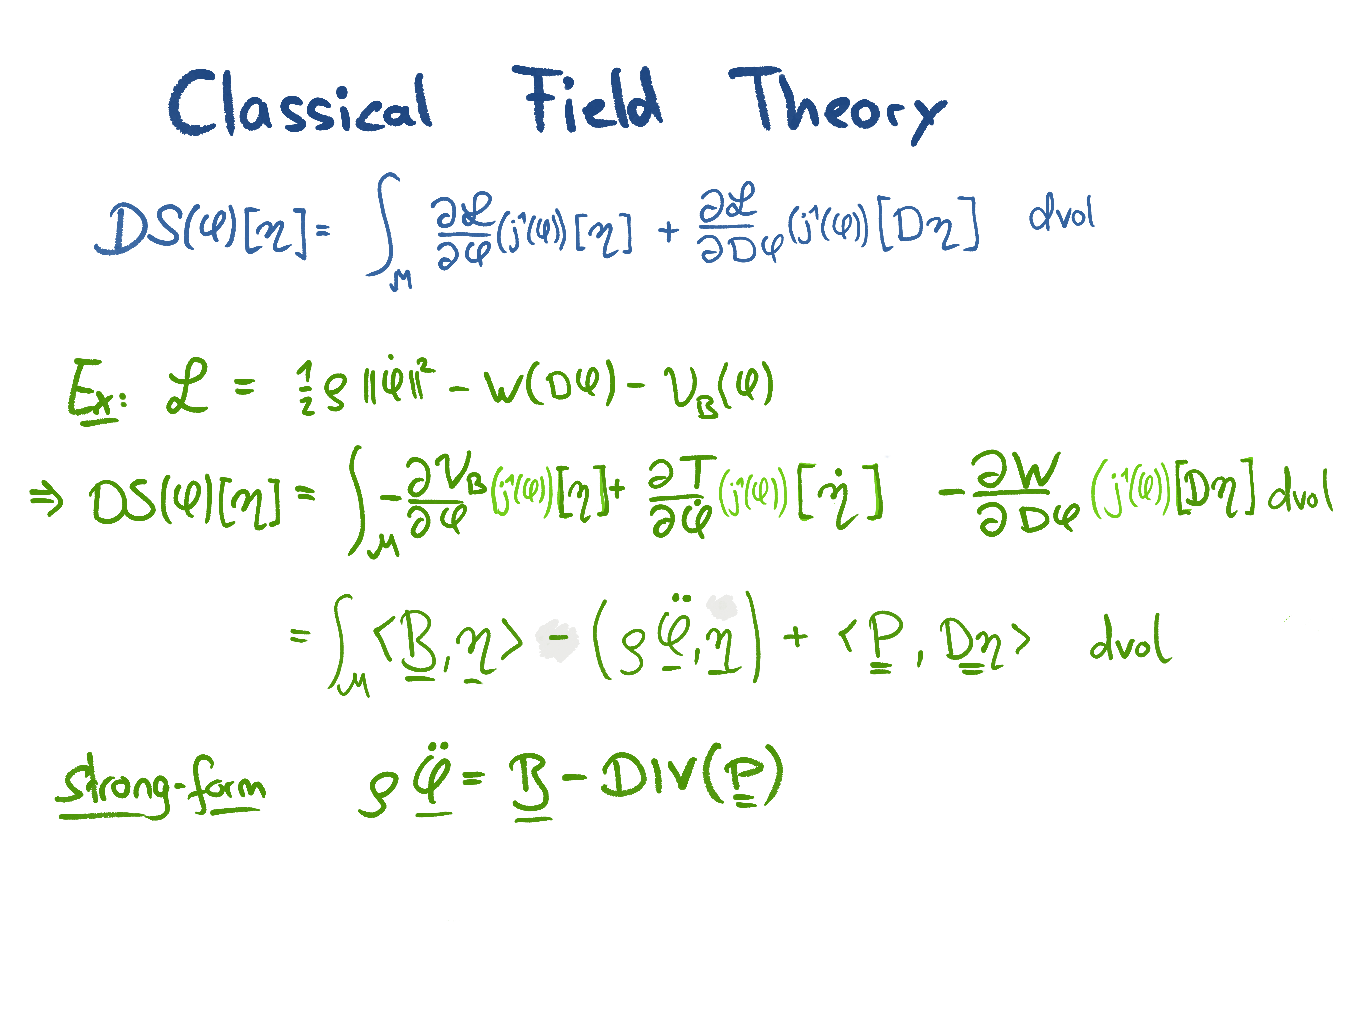 Classical Field Theory
DS(φ)[η] = ∫_M ∂ℒ/∂φ (j¹(φ))[η] + ∂ℒ/∂Dφ (j¹(φ))[Dη] dvol
Ex: ℒ = ½ ρ ‖φ̇‖² - W(Dφ) - V_B(φ)
⇒ DS(φ)[η] = ∫_M - ∂V_B/∂φ (j¹(φ))[η] + ∂T/∂φ̇ (j¹(φ))[η̇] - ∂W/∂Dφ (j¹(φ))[Dη] dvol
= ∫_M <B, η> - (ρ φ̈, η) + <P, Dη> dvol
strong-form ρ φ̈ = B - DIV(P)